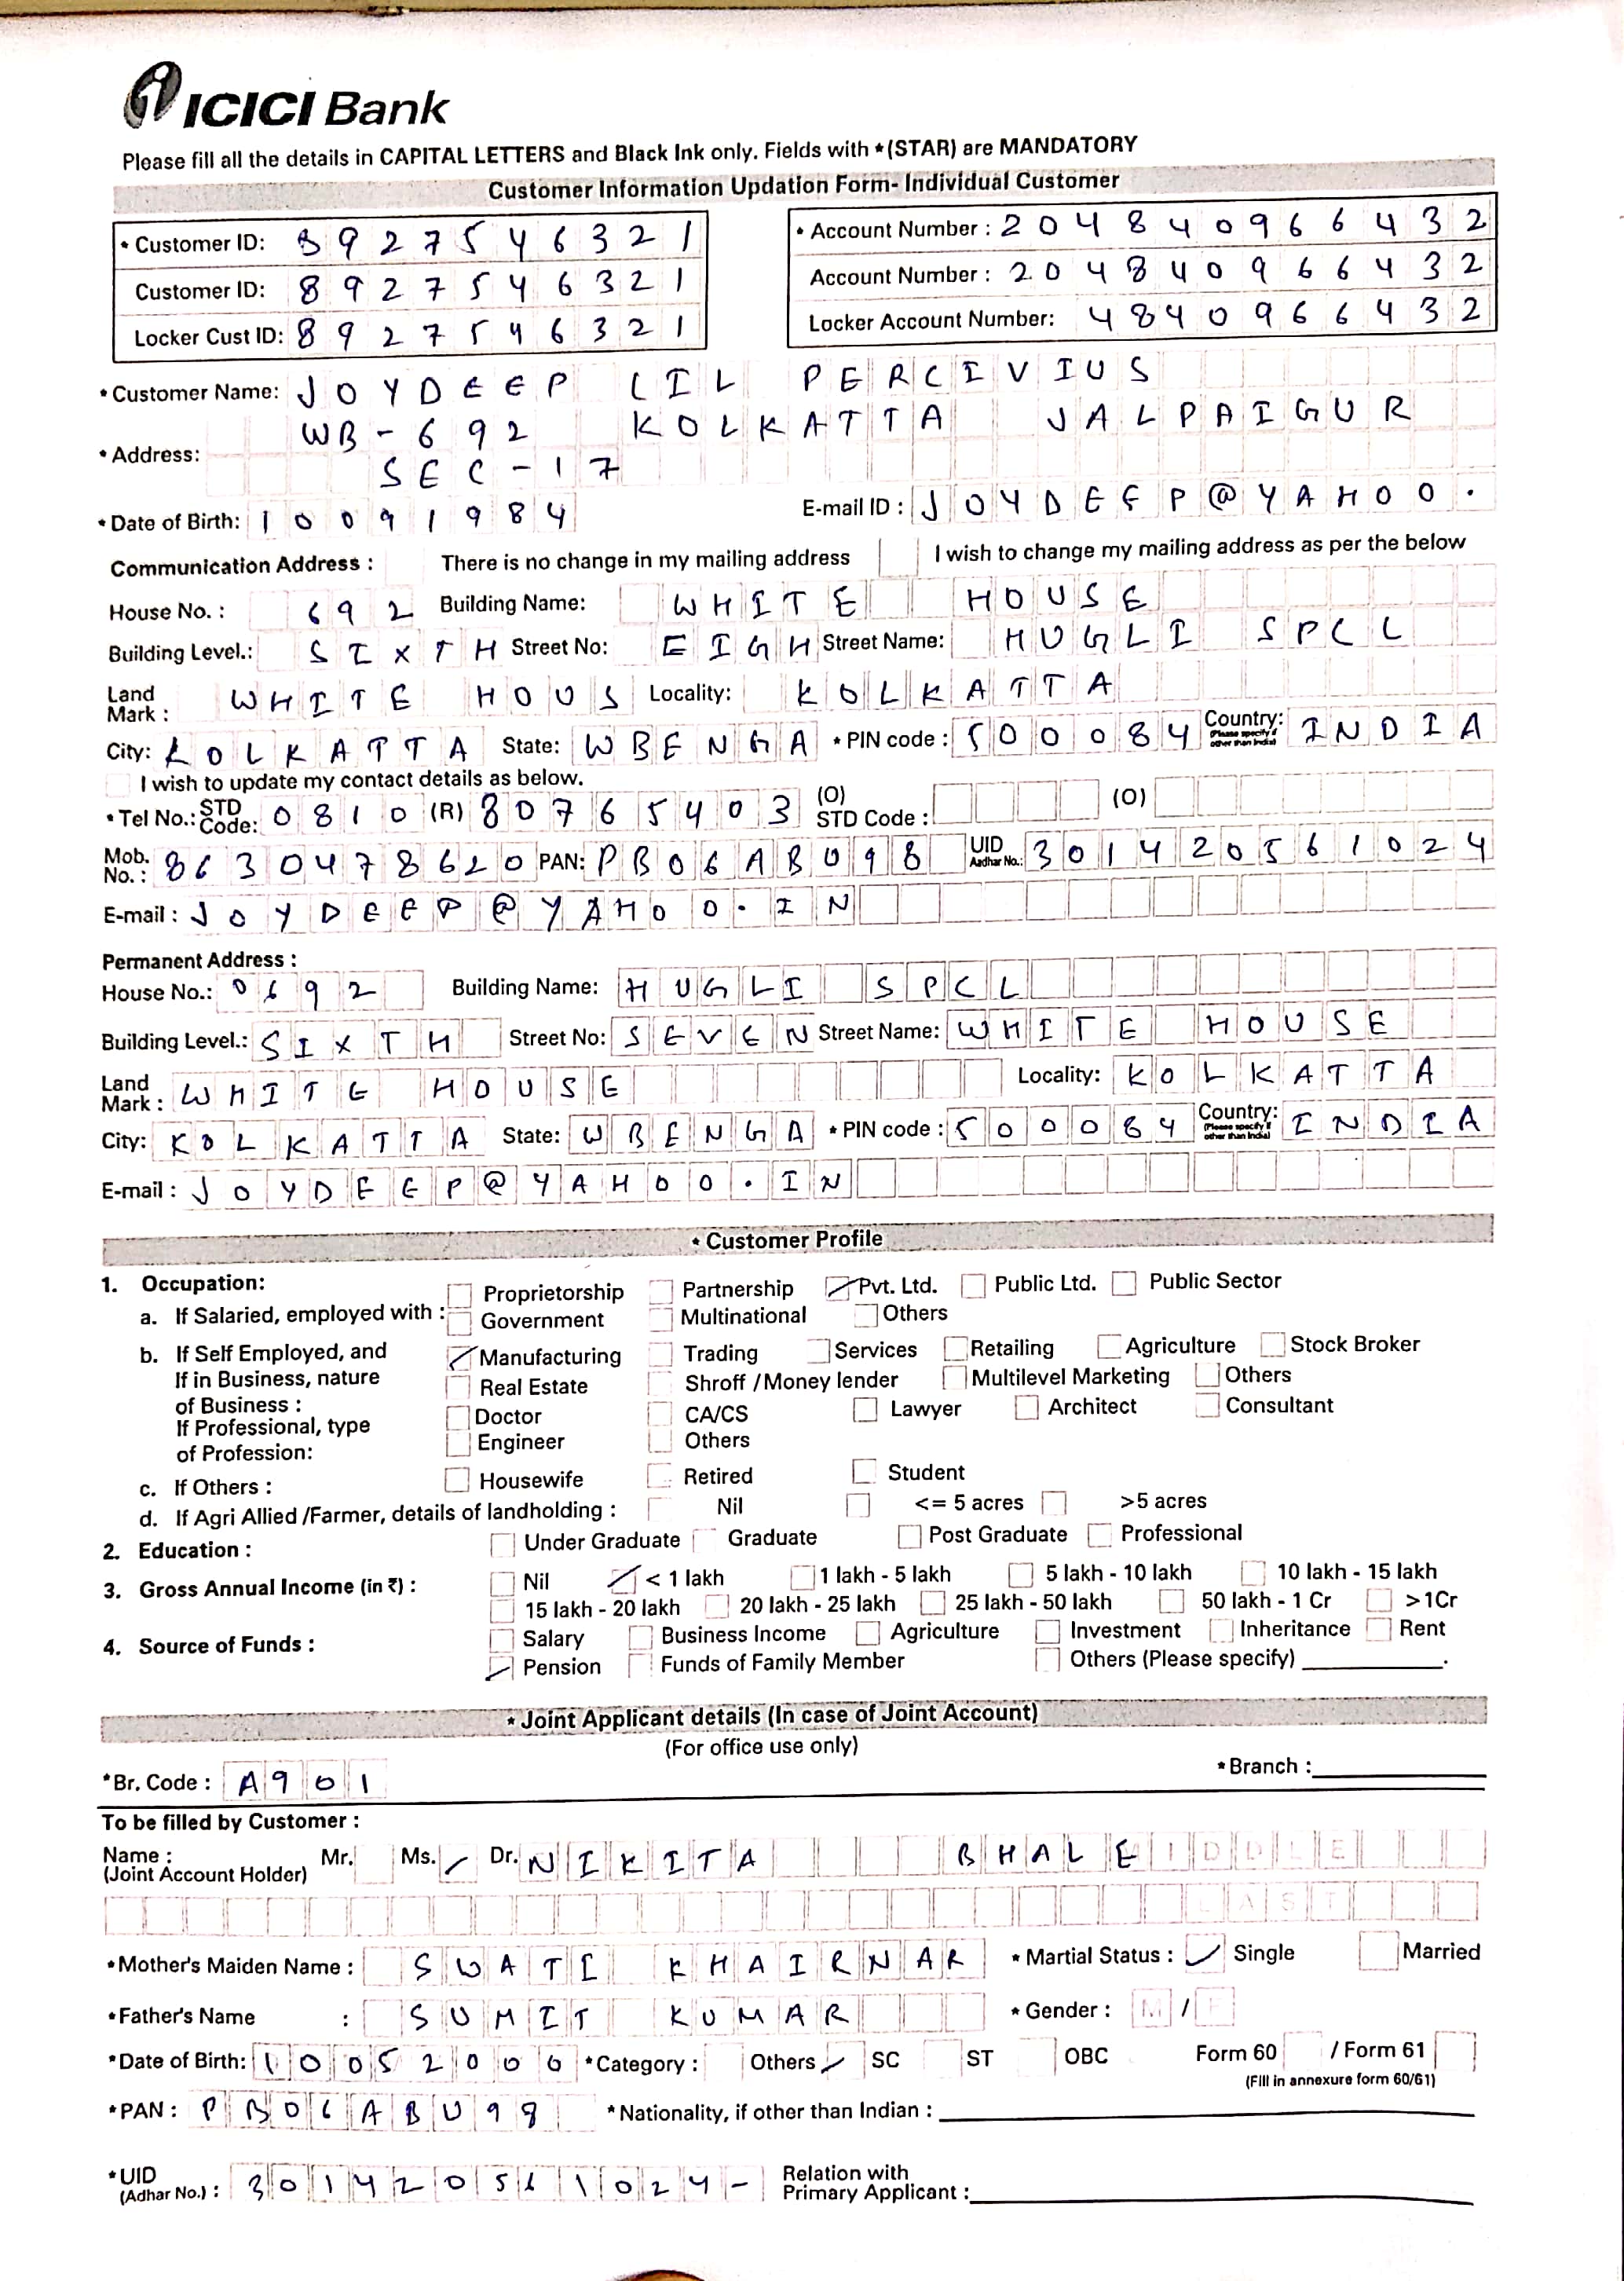 ICICI Bank
Please fill all the details in CAPITAL LETTERS and Black Ink only. Fields with *(STAR) are MANDATORY
Customer Information Updation Form- Individual Customer
* Customer ID: 8927546321 * Account Number : 204840966432
Customer ID: 8927546321 Account Number : 204840966432
Locker Cust ID: 8927546321 Locker Account Number: 4840966432
* Customer Name: JOYDEEP LIL PERCIVIUS
* Address: WB-692 KOLKATTA JALPAIGUR
SEC-17
* Date of Birth: 10091984 E-mail ID : JOYDEEP@YAHOO.
Communication Address : There is no change in my mailing address I wish to change my mailing address as per the below
House No. : 692 Building Name: WHITE HOUSE
Building Level.: SIXTH Street No: EIGH Street Name: HUGLI SPCL
Land Mark : WHITE HOUS Locality: KOLKATTA
City: KOLKATTA State: WBENGA * PIN code : 500084 Country: (Please specify if other than India) INDIA
I wish to update my contact details as below.
* Tel No.: STD Code: 0810 (R) 80765403 (O) STD Code : (O)
Mob. No. : 8630478620 PAN: PB06ABU98 UID Aadhar No.: 301420561024
E-mail : JOYDEEP@YAHOO.IN
Permanent Address :
House No.: 0692 Building Name: HUGLI SPCL
Building Level.: SIXTH Street No: SEVEN Street Name: WHITE HOUSE
Land Mark : WHITE HOUSE Locality: KOLKATTA
City: KOLKATTA State: WBENGA * PIN code : 500084 Country: (Please specify if other than India) INDIA
E-mail : JOYDEEP@YAHOO.IN
* Customer Profile
1. Occupation: Proprietorship Partnership Pvt. Ltd. Public Ltd. Public Sector
a. If Salaried, employed with : Government Multinational Others
b. If Self Employed, and Manufacturing Trading Services Retailing Agriculture Stock Broker
If in Business, nature Real Estate Shroff /Money lender Multilevel Marketing Others
of Business :
If Professional, type Doctor CA/CS Lawyer Architect Consultant
of Profession: Engineer Others
c. If Others : Housewife Retired Student
d. If Agri Allied /Farmer, details of landholding : Nil <= 5 acres >5 acres
2. Education : Under Graduate Graduate Post Graduate Professional
3. Gross Annual Income (in ₹) : Nil < 1 lakh 1 lakh - 5 lakh 5 lakh - 10 lakh 10 lakh - 15 lakh
15 lakh - 20 lakh 20 lakh - 25 lakh 25 lakh - 50 lakh 50 lakh - 1 Cr >1Cr
4. Source of Funds : Salary Business Income Agriculture Investment Inheritance Rent
Pension Funds of Family Member Others (Please specify)
* Joint Applicant details (In case of Joint Account)
(For office use only)
*Br. Code : A901 * Branch :
To be filled by Customer :
Name : (Joint Account Holder) Mr. Ms. Dr. NIKITA BHALE IDDLE
LAST
*Mother's Maiden Name : SWATI KHAIRNAR * Martial Status : Single Married
*Father's Name : SUMIT KUMAR * Gender : M / F
*Date of Birth: 10052000 *Category : Others SC ST OBC Form 60 / Form 61
(Fill in annexure form 60/61)
*PAN : PB06ABU98 *Nationality, if other than Indian :
*UID (Adhar No.) : 301420561024- Relation with Primary Applicant :